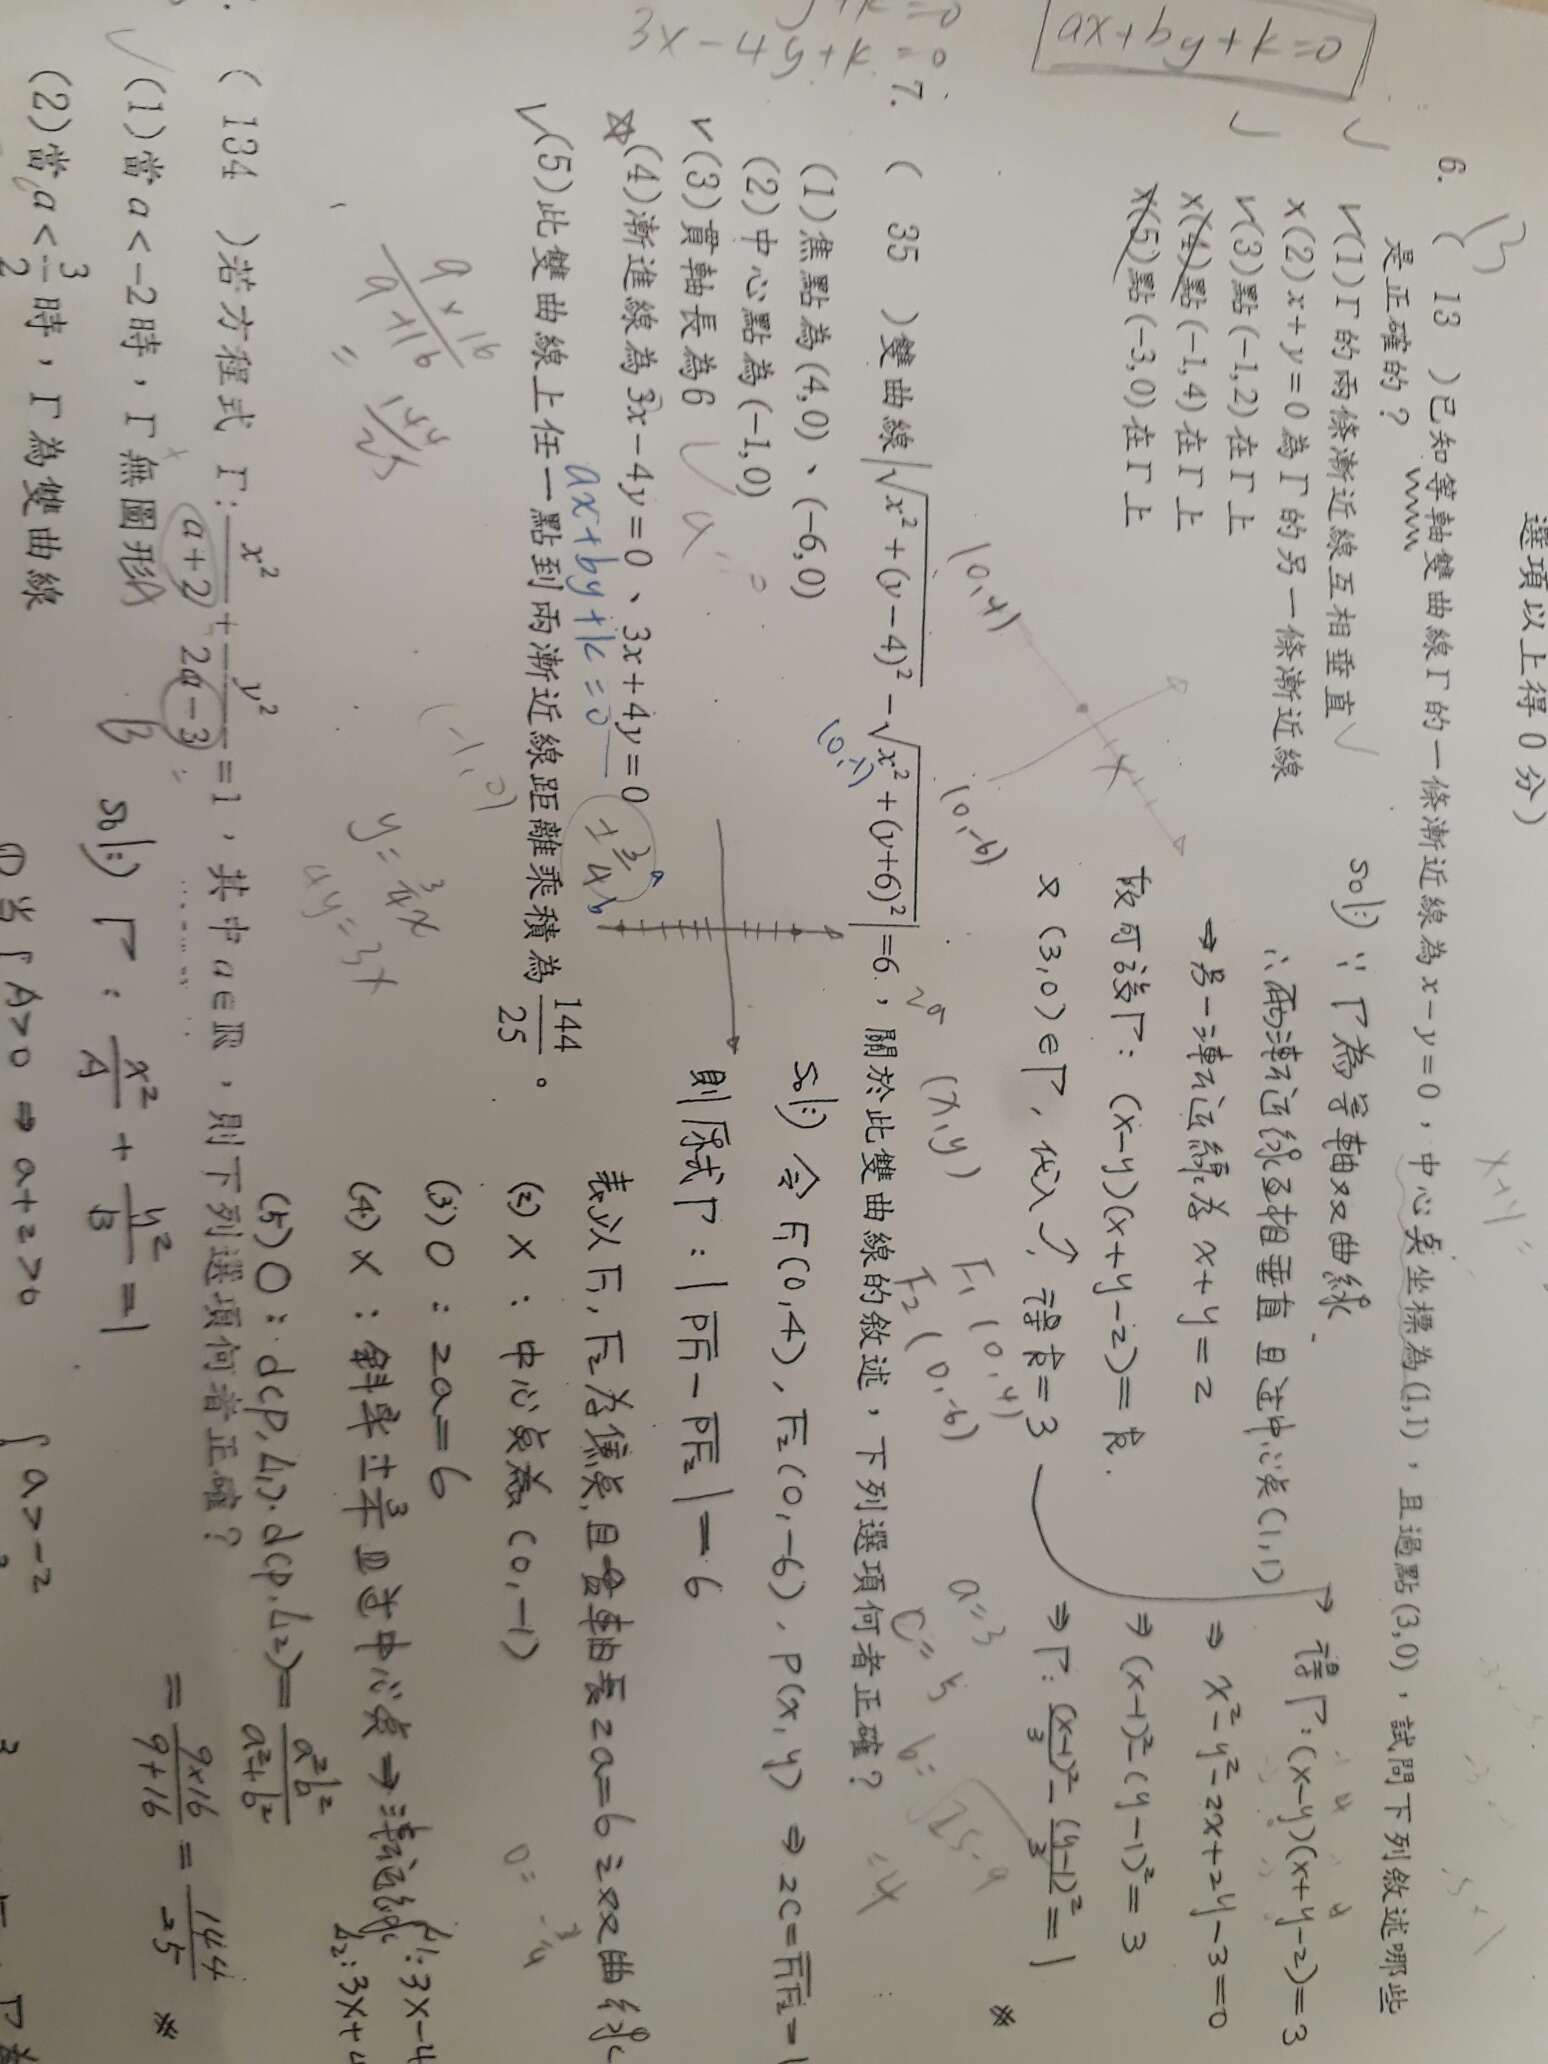 選項以上得0分)
6. ( 13 )已知等軸雙曲線Γ的一條漸近線為x-y=0,中心點坐標為(1,1),且過點(3,0),試問下列敘述哪些
是正確的?
√(1)Γ的兩條漸近線互相垂直√
×(2)x+y=0為Γ的另一條漸近線
√(3)點(-1,2)在Γ上
×(4)點(-1,4)在Γ上
×(5)點(-3,0)在Γ上
sol:) ∵Γ為等軸双曲線
∴兩漸近線互相垂直且过中心点(1,1)
⇒另一漸近線為 x+y=2
故可設Γ: (x-y)(x+y-2)=k.
又(3,0)∈Γ, 代入↗, 得k=3
得Γ:(x-y)(x+y-2)=3
⇒ x²-y²-2x+2y-3=0
⇒ (x-1)²-(y-1)²=3
⇒Γ: (x-1)²/3 - (y-1)²/3 = 1
ax+by+k=0
3x-4y+k=0
7. ( 35 )雙曲線|√(x²+(y-4)²) - √(x²+(y+6)²)|=6,關於此雙曲線的敘述,下列選項何者正確?
(1)焦點為(4,0)、(-6,0)
(2)中心點為(-1,0)
√(3)貫軸長為6
☆(4)漸進線為3x-4y=0、3x+4y=0
√(5)此雙曲線上任一點到兩漸近線距離乘積為 144/25。
(0,4)
(0,-6)
(0,-1)
2a
(x,y)
F₁ (0,4)
F₂ (0,-6)
a=3
c=5
b=√25-9
=4
ax+by+k=0
±3/4
a
b
(-1,0)
y=3/4x
4y=3x
sol:) 令F₁(0,4), F₂(0,-6), P(x,y) ⇒ 2c=F₁F₂=1
則原式Γ: |PF₁-PF₂|=6
表以F₁, F₂為焦点,且貫軸長2a=6之双曲線
(2)×: 中心点為(0,-1)
(3)○: 2a=6
(4)×: 斜率±3/4且过中心点→漸近線 L₁:3x-4
L₂:3x+4
(5)○: d(P,L₁)·d(P,L₂)= a²b²/(a²+b²)
= 9×16/(9+16) = 144/25
( 134 )若方程式 Γ: x²/(a+2) + y²/(2a-3) =1,其中a∈ℝ,則下列選項何者正確?
√(1)當a<-2時,Γ無圖形
(2)當a<3/2時,Γ為雙曲線
sol:) Γ: x²/A + y²/B = 1
① 当{A>0 ⇒ a+2>0
{a>-2